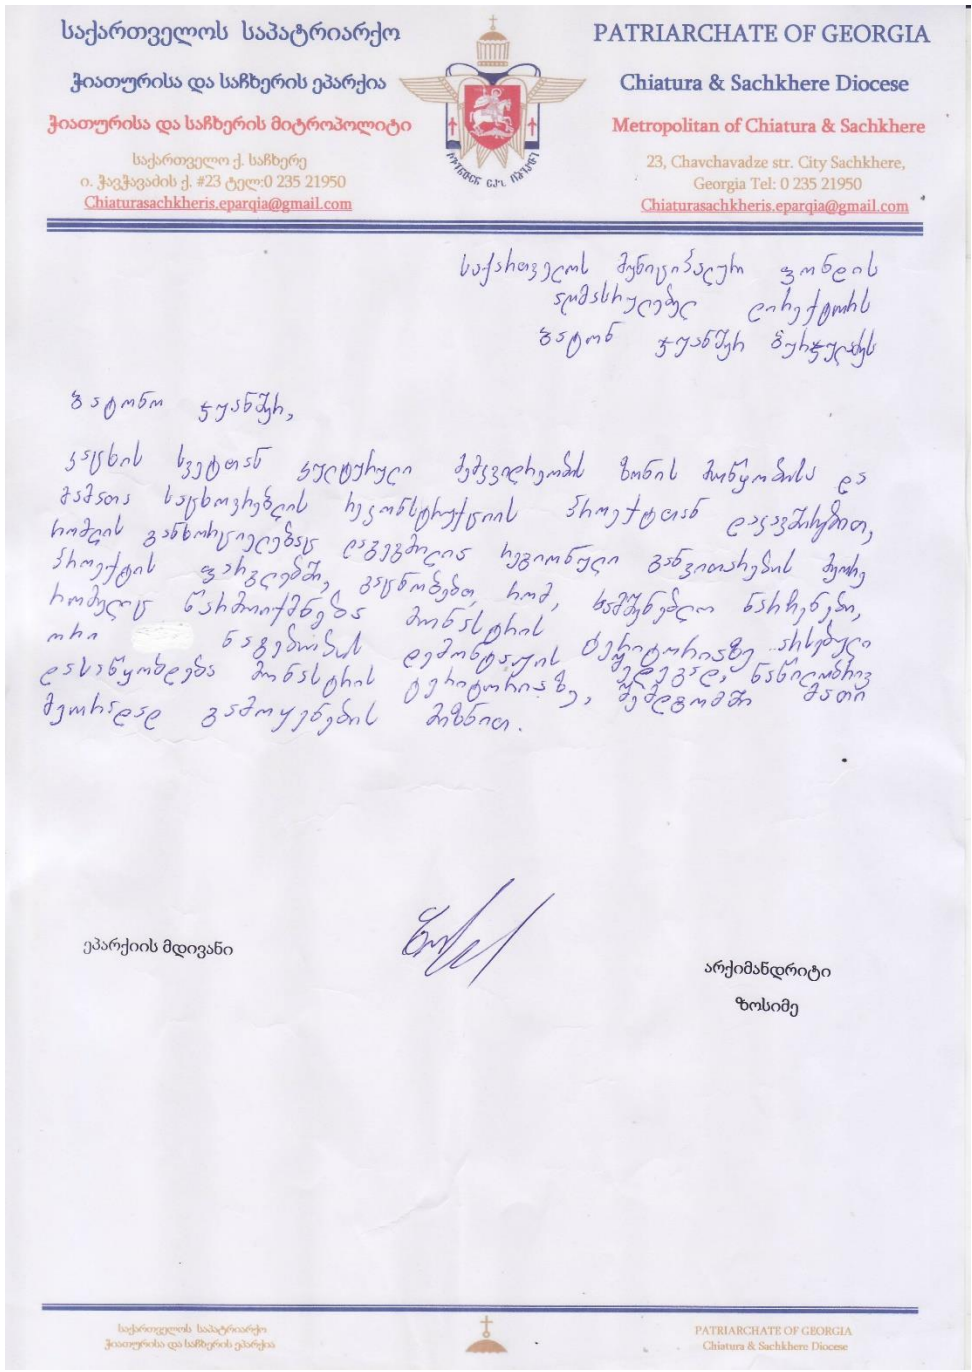 საქართველოს საპატრიარქო
ჭიათურისა და საჩხერის ეპარქია
ჭიათურისა და საჩხერის მიტროპოლიტი
საქართველო ქ. საჩხერე
ი. ჭავჭავაძის ქ. #23 ტელ:0 235 21950
Chiaturasachkheris.eparqia@gmail.com
PATRIARCHATE OF GEORGIA
Chiatura & Sachkhere Diocese
Metropolitan of Chiatura & Sachkhere
23, Chavchavadze str. City Sachkhere,
Georgia Tel: 0 235 21950
Chiaturasachkheris.eparqia@gmail.com
საქართველოს მუნიციპალურ ფონდის
აღმასრულებელ დირექტორს
ბატონ ჯუანშერ ბურჭულაძეს
ბატონო ჯუანშერ,
კაცხის სვეტთან კულტურული მემკვიდრეობის ზონის მოწყობისა და
მამათა საცხოვრებლის რეკონსტრუქციის პროექტთან დაკავშირებით,
რომლის განხორციელებაც დაგეგმილია რეგიონული განვითარების მეორე
პროექტის ფარგლებში, გაცნობებთ, რომ, სამშენებლო ნარჩენები,
რომელიც წარმოიქმნება მონასტრის ტერიტორიაზე არსებული
ორი ნაგებობის დემონტაჟის შედეგად, ნაწილობრივ
დასაწყობდება მონასტრის ტერიტორიაზე, შემდგომში მათი
მეორადად გამოყენების მიზნით.
ეპარქიის მდივანი
არქიმანდრიტი
ზოსიმე
საქართველოს საპატრიარქო
ჭიათურისა და საჩხერის ეპარქია
PATRIARCHATE OF GEORGIA
Chiatura & Sachkhere Diocese